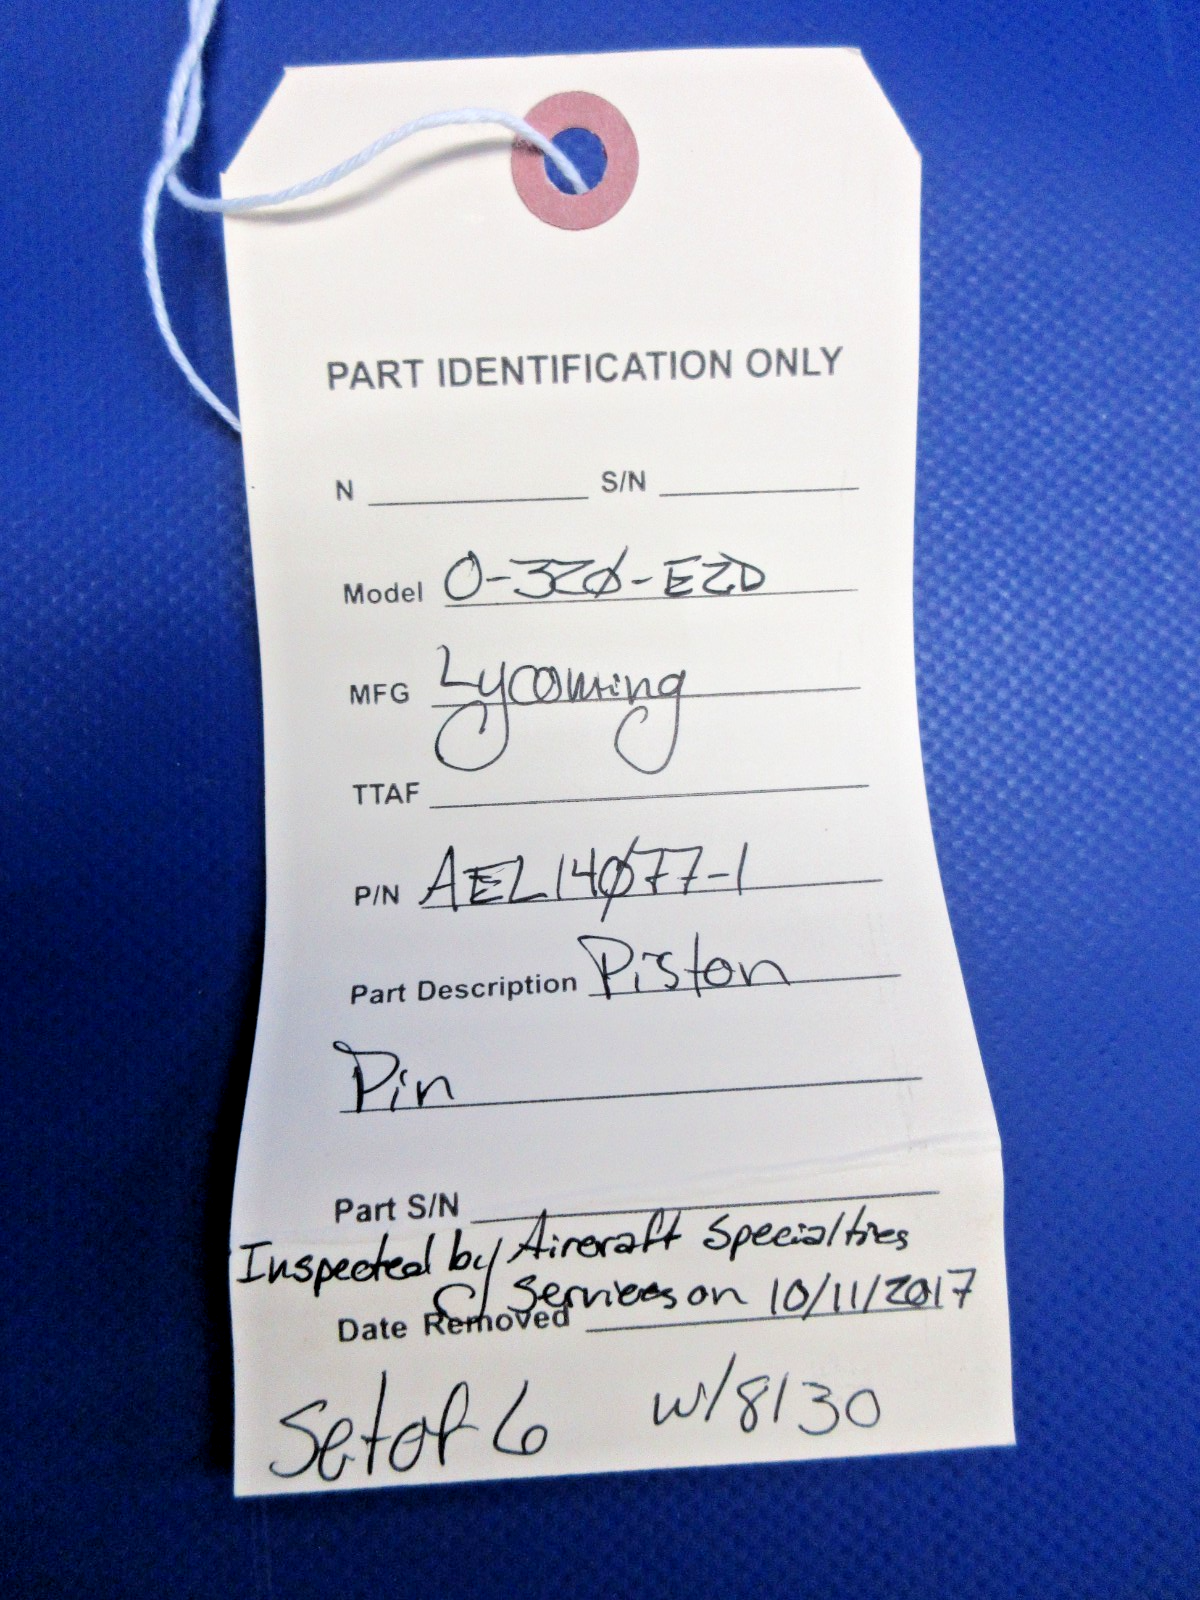 PART IDENTIFICATION ONLY
N S/N
Model O-320-E2D
MFG Lycoming
TTAF
P/N AEL14077-1
Part Description Piston
Pin
Part S/N
Inspected by Aircraft Specialties
Services on 10/11/2017
Date Removed
Set of 6 w/8130